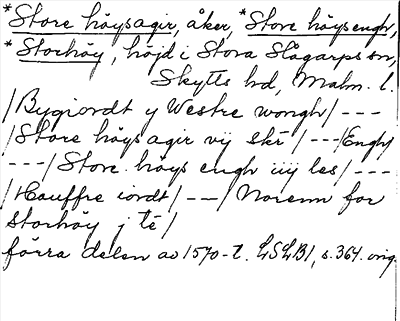 *Store höysagir, åker, *Store höysengh,
*Storhöy, höjd i Stora Slågarps sn,
Skytts hd, Malm. l.
/Bygiordt y Westre wongh/ ---
/Store höys agir vij skr/ ---/Engh/
---/Store höys engh iiij les/ ---
/Hauffre iordt/ --/ Norenn for
storhöy j te/
förra delen av 1570-t. LSLB1, s. 364. orig.